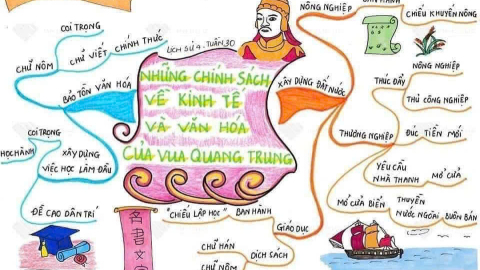 COI TRỌNG
CHỮ VIẾT CHÍNH THỨC
CHỮ NÔM
BẢO TỒN VĂN HÓA
COI TRỌNG
HỌC HÀNH
XÂY DỰNG
VIỆC HỌC LÀM ĐẦU
ĐỀ CAO DÂN TRÍ
LỊCH SỬ 4. TUẦN 30
NHỮNG CHÍNH SÁCH
VỀ KINH TẾ
VÀ VĂN HÓA
CỦA VUA QUANG TRUNG
NÔNG NGHIỆP
CHIẾU KHUYẾN NÔNG
XÂY DỰNG ĐẤT NƯỚC
NÔNG NGHIỆP
THÚC ĐẨY
THỦ CÔNG NGHIỆP
THƯƠNG NGHIỆP
ĐÚC TIỀN MỚI
YÊU CẦU
NHÀ THANH
MỞ CỬA
MỞ CỬA BIỂN
THUYỀN
NƯỚC NGOÀI
BUÔN BÁN
GIÁO DỤC
BAN HÀNH
"CHIẾU LẬP HỌC"
DỊCH SÁCH
CHỮ HÁN
CHỮ NÔM
名
書
文